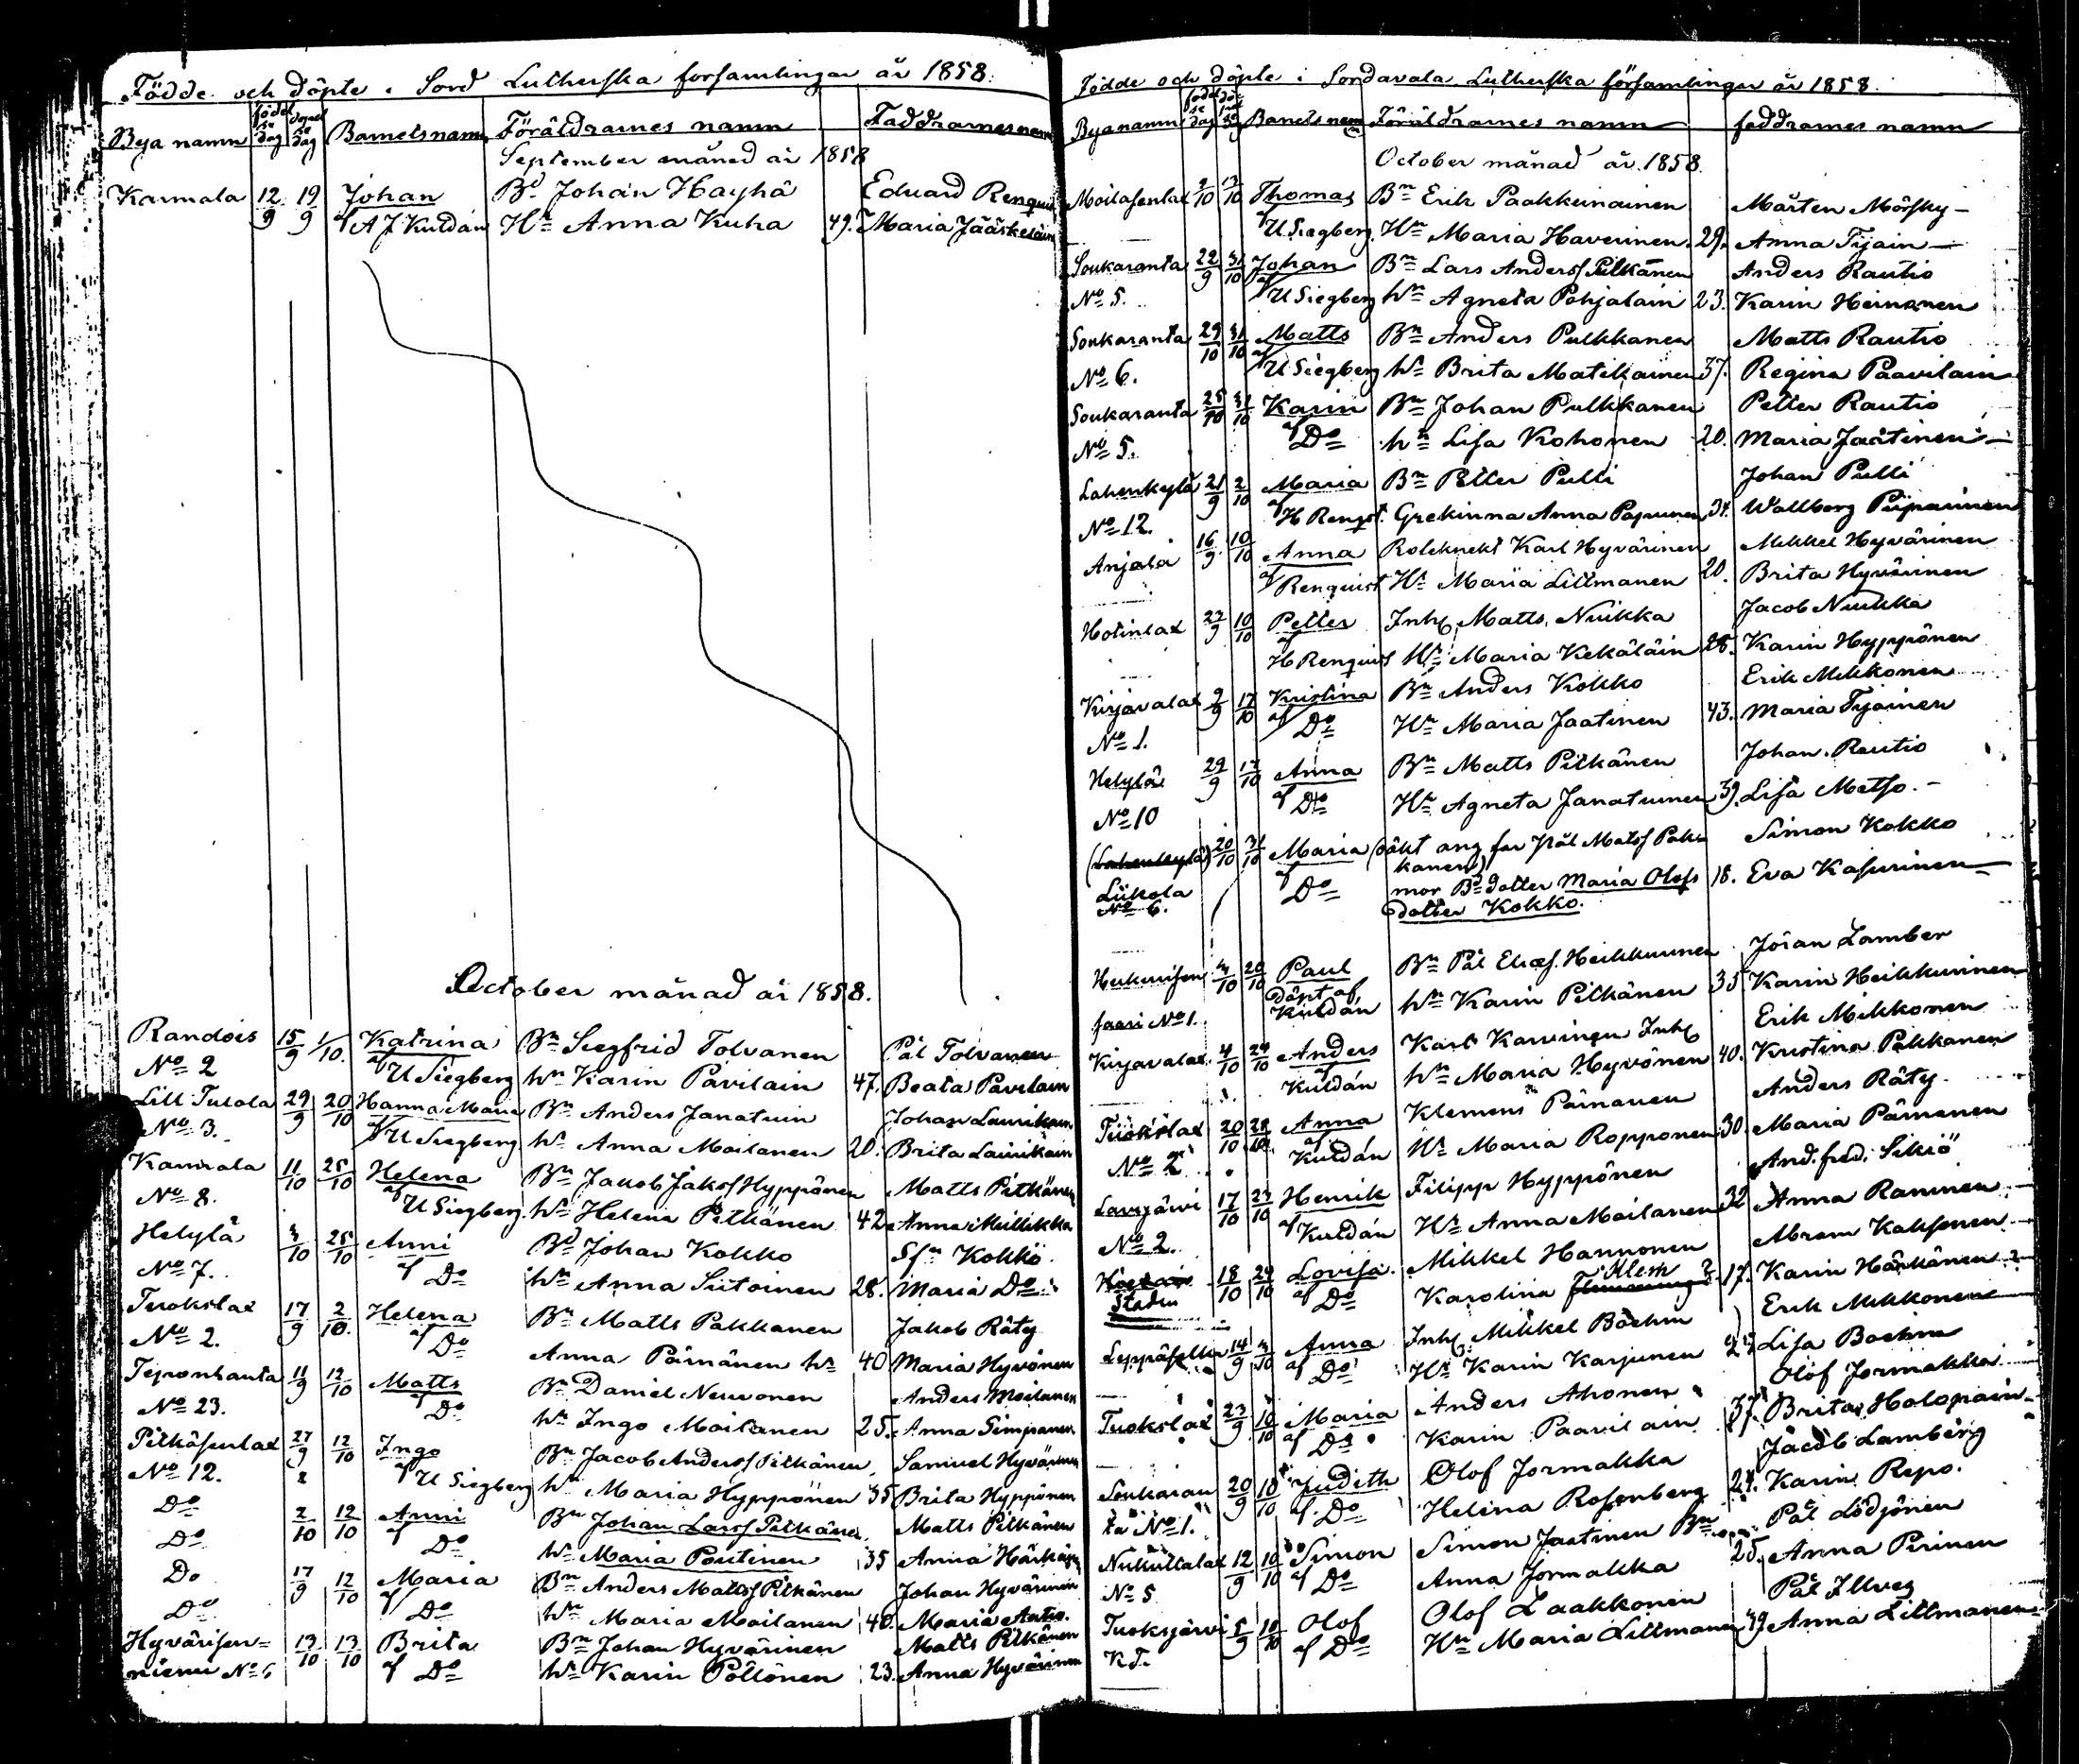 Födde och döpte i Sord Lutherska forsamlingar år 1858.
Bya namn födel se dag döpel se dag Barnets namn Föräldrarnes namn Faddrarnes namn
September månad år 1858
Karmala 12/9 19/9 Johan Bd Johan Hayhä Eduard Renquist
af A J Kuldán Hn Anna Kuha 49. Maria Jääskeläin
October månad år 1858.
Randois 15/9 1/10. Katrina Bn Siegfrid Tolvanen Pål Tolvanen
No 2 af U Siegberg hn Karin Pavilain 47. Beata Pavilain
Lill Tulola 29/9 20/10 Hanna Maria Bn Anders Janatuin Johan Laurikain
No 3. af U Siegberg hn Anna Moilanen 20. Brita Laurikain
Karmala 11/10 25/10 Helena Bn Jakob Jakosf Hyppönen Matts Pitkänen
No 8. af U Siegberg. hn Helena Pitkänen 42
Helylä 3/10 25/10 Anni Bd Johan Kokko Sfn Kokko
No 7. af Do hn Anna Siitoinen 28. Maria Do
Tuokslax 17/9 2/10. Helena Bn Matts Pakkanen Jakob Räty
No 2. af Do Anna Pärnänen hn 40 Maria Hyvönen
11/9 12/10 Matts Bn Daniel Neuvonen Anders Moilanen
No 23. af Do hn Ingo Moilanen 25. Anna Simpanen
Pitkäsenlax 27/9 12/10 Ingo Bn Jacob Andersf Pitkänen Samuel Hyvärinen
No 12. af U Siegberg hn Maria Hyppönen 35 Brita Hyppönen
Do 2/10 12/10 Anni Bn Johan Larsf Pitkänen Matts Pitkänen
Do af Do hn Maria Poutinen 35 Anna Härkönen
Do 17/9 12/10 Maria Bn Anders Mattsf Pitkänen Johan Hyvärinen
Do af Do hn Maria Moilanen 40. Maria
Hyvärisen= 13/10 13/10 Brita Bn Johan Hyvärinen Matts Pitkänen
niemi No 6 af Do hn Karin Pöllönen 23. Anna Hyvärinen
Födde och döpte i Sordavala Lutherska församlingar år 1858.
Bya namn födel se dag döp Barnets namn Föräldrarnes namn faddrarnes namn
October månad år 1858.
Moilasenlax 2/10 Thomas Bn Erik Paakkunainen Mårten Mörsky —
af U Siegberg. Hn Maria Haverinen. 29. Anna Tijain —
Soukaranta 22/9 31/10 Johan Bn Lars Andersf Pitkänen Anders Rautio
No 5. af U Siegberg hn Agneta Pohjalain 23. Karin Heinonen
Soukaranta 29/10 31/10 Matts Bn Anders Pulkkanen Matts Rautio
No 6. af U Siegberg hn Brita Matikainen 37. Regina Paavilain
Soukaranta 25/10 31/10 Karin Bn Johan Pulkkanen Petter Rautio
No 5. af Do hn Lisa Kohonen 20. Maria Jaatinen —
Lahenkylä 21/9 2/10 Maria Bn Petter Pulli Johan Pulli
No 12. af H Renqst. Grekinna Anna Papunen 34. Wallborg Piiparinen
Anjala 16/9 10/10 Anna Roteknekt Karl Hyvärinen Mikkel Hyvärinen
af Renquist Hn Maria Littmanen 20. Brita Hyvärinen
Hotinlax 22/9 10/10 Petter Inh Matts Nuikka Jacob Nuikka
af H Renquist Hn Maria Kekäläin 28. Karin Hyppönen
Kirjavalax 9/9 17/10 Kristina Bn Anders Kokko Erik Mikkonen
No 1. af Do Hn Maria Jaatinen 43. Maria Tijainen
Helylä 29/9 17/10 Anna Bn Matts Pitkänen Johan Rautio
No 10 af Do Hn Agneta Janatuinen 39. Lisa Matso. –
(Lahenkylä) 20/10 31/10 Maria (oäkt ang far Pål Matsf Pak= Simon Kokko
kanen)
Liikola No 6. af Do mor Bd dotter Maria Olofs 18. Eva Kasurinen
dotter Kokko.
4/10 20/10 Paul Bn Pål Eliasf. Heikkurinen Jöran Lamber
saari No 1. döpt af Kuldán hn Karin Pitkänen 35 Karin Heikkurinen
Kirjavalax. 4/10 24/10 Anders Karl Karvinen Inh Erik Mikkonen
af Kuldán hn Maria Hyvönen 40. Kristina Pakkanen
Tuokslax 20/10 28/10 Anna Klemens Pärnanen Anders Räty.
No 2 af Kuldán Hn Maria Ropponen 30. Maria Pärnanen
17/10 24/10 Henrik Filipp Hyppönen And. fred. Sikiö
No 2. af Kuldán Hn Anna Moilanen 32 Anna Raninen
Staden 18/10 24/10 Lovisa. Mikkel Hannonen Abram
af Do Karolina Klem 17. Karin Härkönen
Leppäselkä 14/9 3/10 Anna Inh Mikkel Boehm Erik Mikkonen
af Do Hn Karin Karjunen 27 Lisa Boehm
Tuokslax 23/9 10/10 Maria Anders Ahonen Olof Jormakka
af Do Karin Paavilain 37. Brita Holopain
Soukaran 20/9 10/10 Judith Olof Jormakka Jacob Lamberg
ta No 1. af Do Helena Rosenberg 24. Karin Repo.
Nukuttalax 12/9 10/10 Simon Simon Jaatinen Bn Pål Lödjönen
No 5 af Do Anna Jormakka 25. Anna Pirinen
Tuoksjärvi 5/9 10/10 Olof Olof Laakkonen Pål Ilves
K T. af Do Hn Maria Littmanen 39 Anna Littmanen